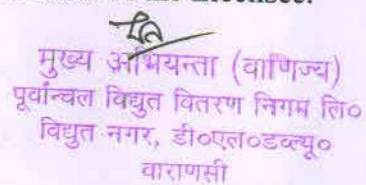 the Licensee.
मुख्य अभियन्ता (वाणिज्य)
पूर्वान्चल विद्युत वितरण निगम लि०
विद्युत नगर, डी०एल०डब्ल्यू०
वाराणसी